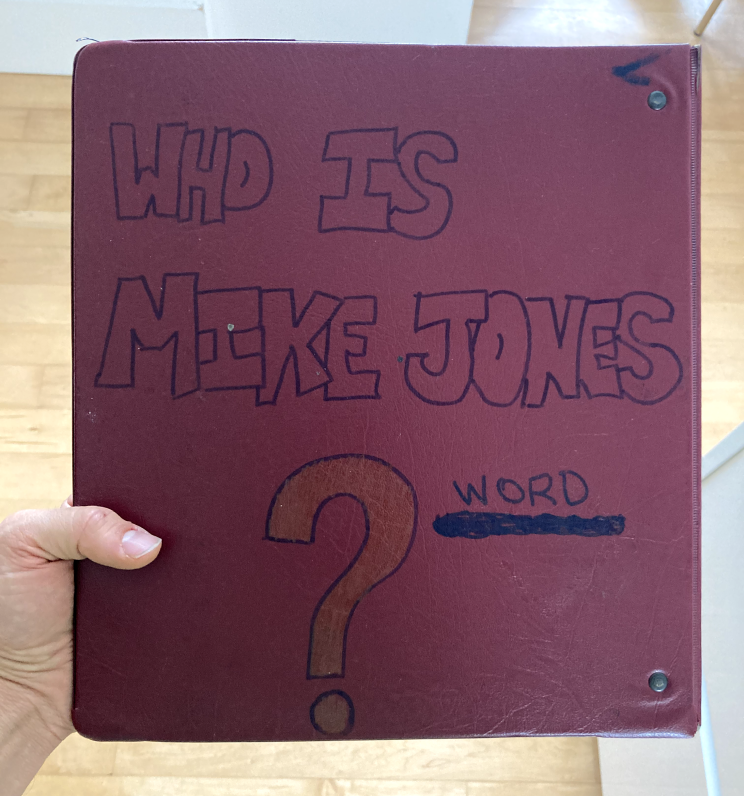 WHO IS
MIKE JONES
?
WORD